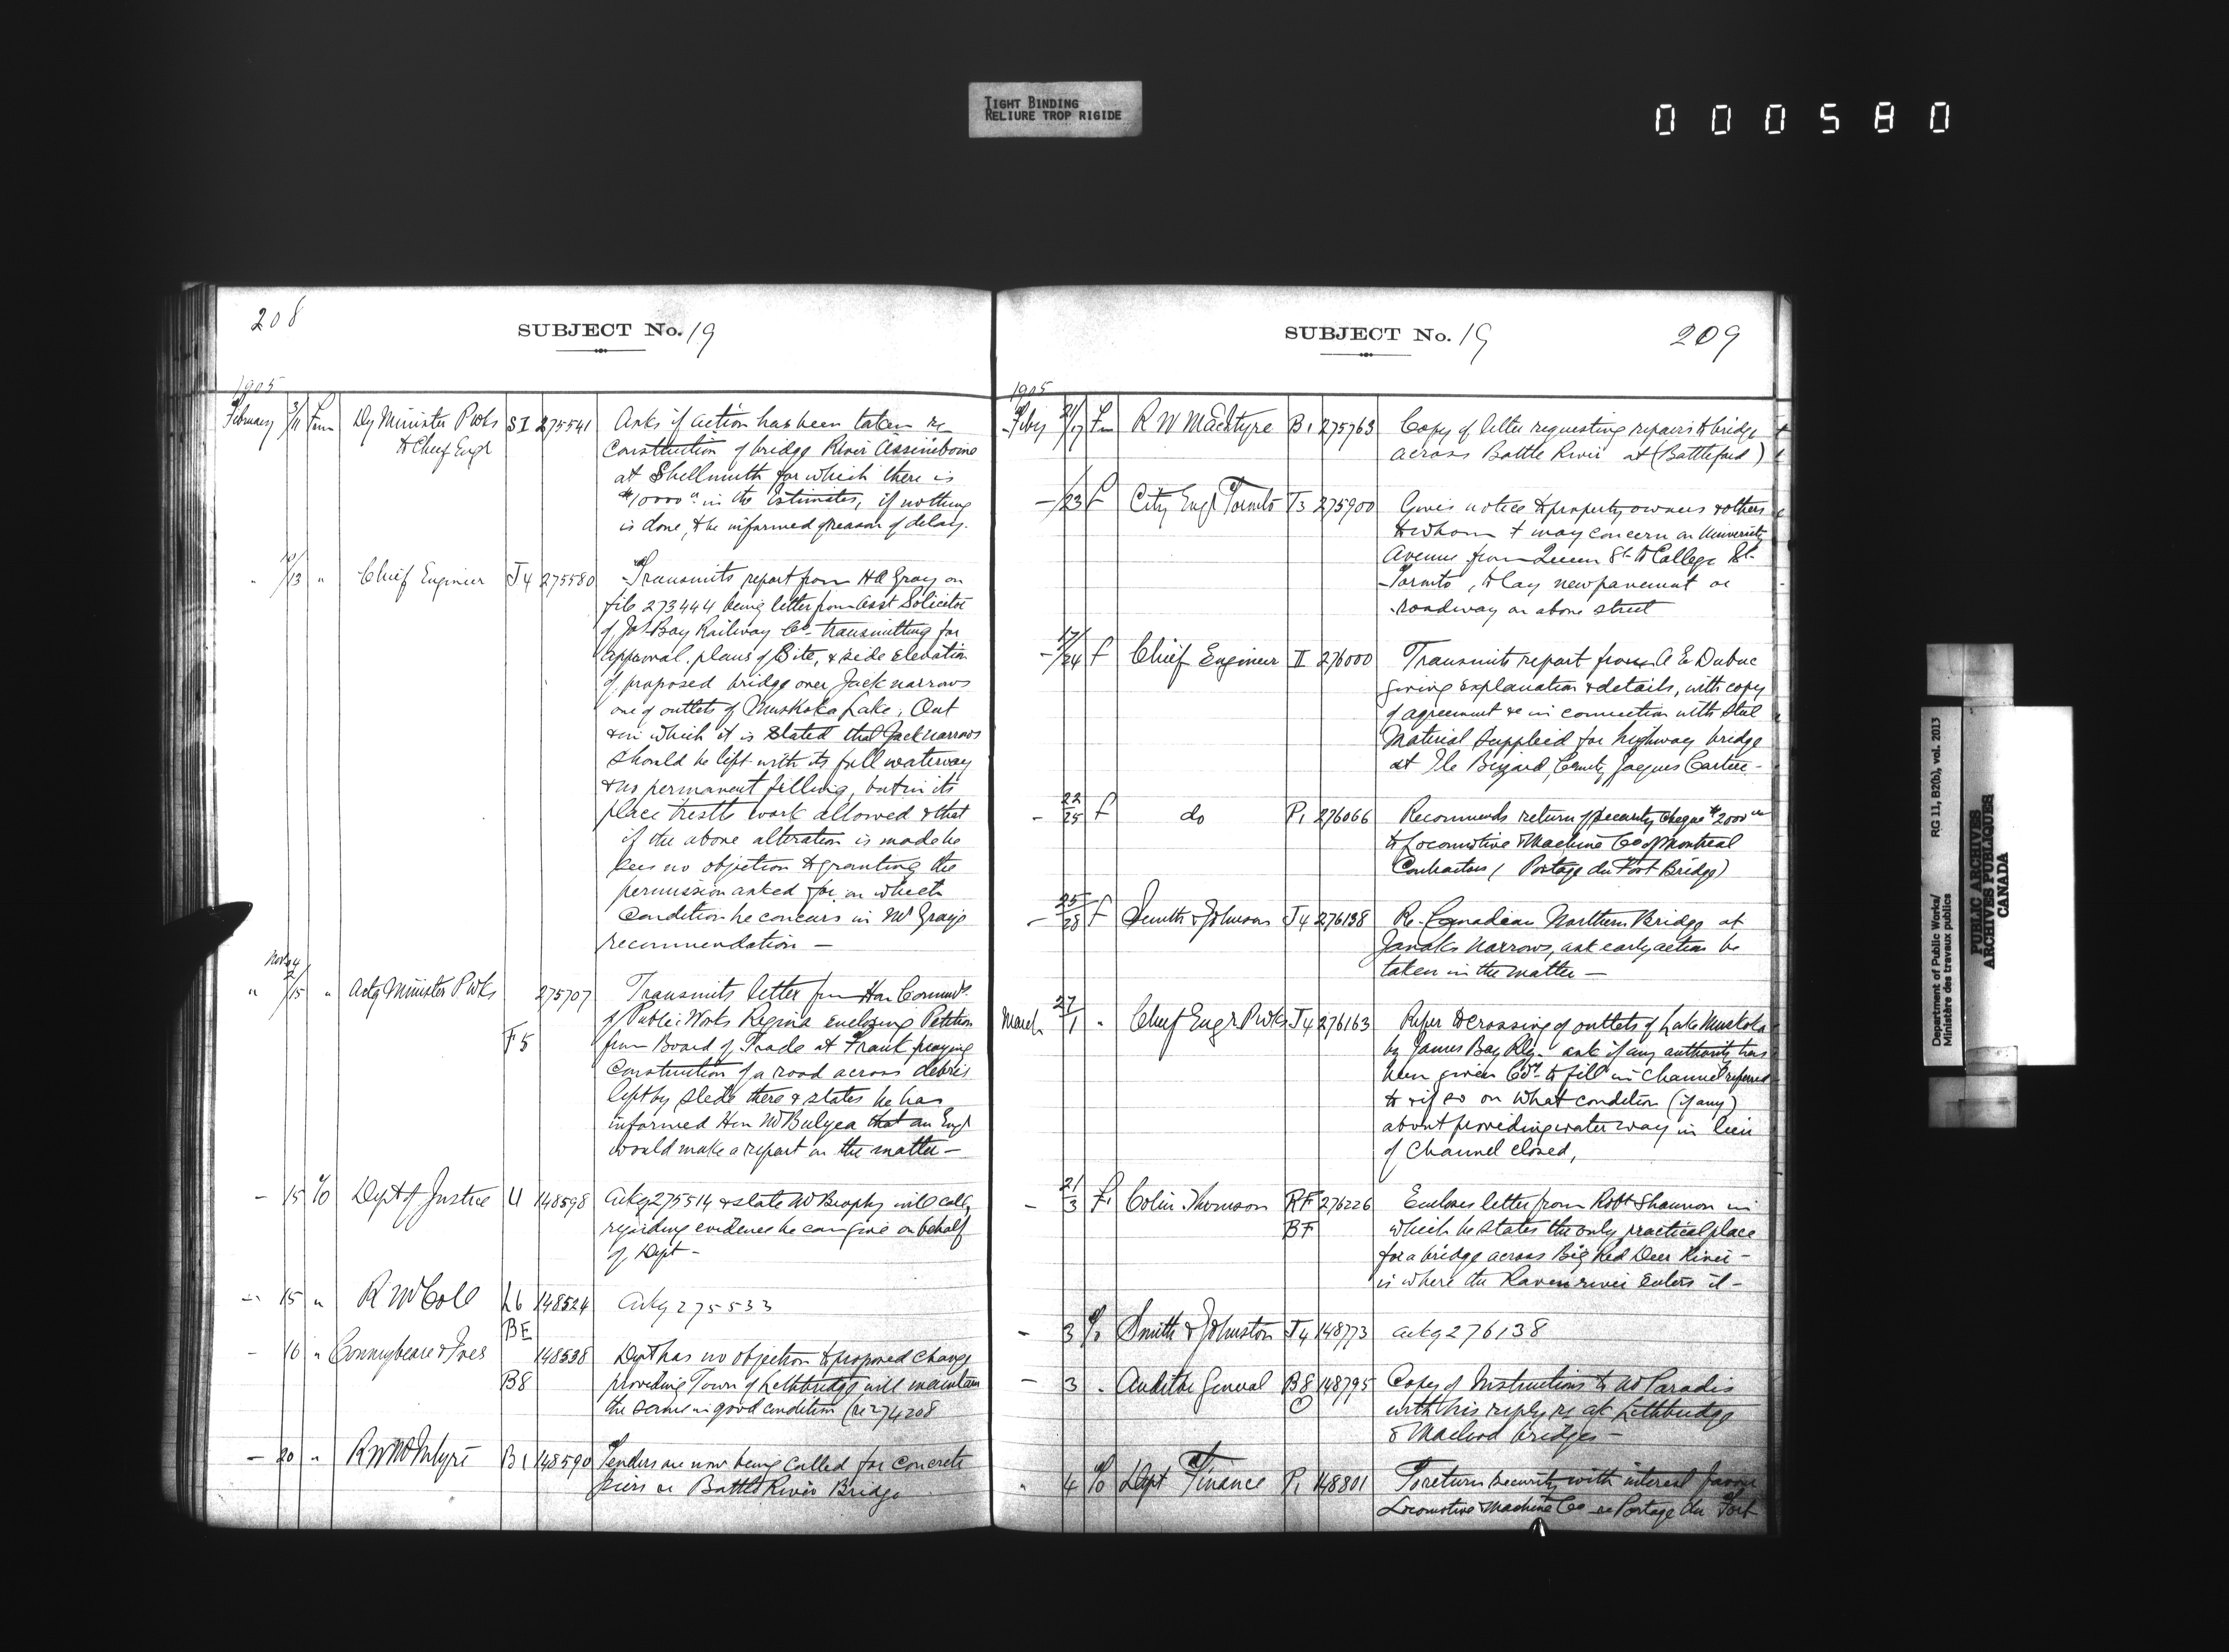 TIGHT BINDING
RELIURE TROP RIGIDE
000580
208
SUBJECT No. 19
1905
February 3/11 Frm Dy Minister P Wks SI 275541 Asks if action has been taken re
to Chief Engr Construction of bridge River Assiniboine
at Shellmuth for which there is
$10000 in the Estimates, if nothing
is done, to be informed of reason of delay.
" 10/13 " Chief Engineer J4 275580 Transmits report from HA Gray on
file 273444 being letter from Asst Solicitor
of Js Bay Railway Co. transmitting for
approval, plans of Site, & side elevation
of proposed bridge over Jack narrows
one of outlets of Muskoka Lake, Ont
& in which it is stated that Jack narrows
should be left with its full waterway
& no permanent filling, but in its
place trestle work allowed & that
if the above alteration is made he
sees no objection to granting the
permission asked for, on which
Condition he concurs in Mr Gray's
recommendation —
" /15 " Actg Minister P Wks 275707 Transmits letter from Hon Commr
of Public Works Regina enclosing Petition
F5 from Board of Trade at Frank praying
Construction of a road across debris
left by slide there & states he has
informed Hon Mr Bulyea that an Engr
would make a report on the matter —
— 15 To Dept of Justice U 148598 Ackg 275514 & state W Brophy will call
regarding evidence he can give on behalf
of Dept —
— 15 " R W Cole L6 148524 Ackg 275533
BE
— 16 " Connybeare & Ives 148538 Dept has no objection to proposed change
B8 providing Town of Lethbridge will maintain
the same in good condition (re 274208
— 20 " R W McIntyre B1 148590 Tenders are now being called for concrete
piers re Battle River Bridge
SUBJECT No. 19
209
1905
Feby 21/17 Fm R W MacIntyre B1 275763 Copy of letter requesting repairs to bridge
across Battle River at (Battleford)
— /23 f City Engr Toronto T3 275900 Gives notice to property owners & others
to whom it may concern on University
Avenue from Queen St. to College St.
Toronto, to lay new pavement or
roadway on above street
— 17/24 f Chief Engineer II 276000 Transmits report from A E Dubuc
giving explanation & details, with copy
of agreement &c in connection with Steel
Material supplied for highway bridge
at Ile Bizard, County Jacques Cartier —
— 22/25 f do P1 276066 Recommends return of security cheque $2000
to Locomotive & Machine Co of Montreal
Contractors (Portage du Fort Bridge)
— 25/28 f Smith & Johnson J4 276138 Re- Canadian Northern Bridge at
Narrows, ask early action be
taken in the matter —
March 27/1 " Chief Engr P Wks J4 276163 Refer to crossing of outlets of Lake Muskoka
by James Bay Rly. ask if any authority has
been given Coy. to fill in channel referred
to & if so on what condition (if any)
about providing water way in lieu
of Channel closed,
— 21/3 f. Colin Thomson RF 276226 Encloses letter from Robt Shannon in
BF which he states the only practical place
for a bridge across Big Red Deer River —
is where the Raven river enters it —
— 3 To Smith & Johnston J4 148773 ackg 276138
— 3 " Auditor General B8 148795 Copy of Instructions to W Paradis
with his reply re at Lethbridge
& Macleod bridges —
" 4 To Dept Finance P1 148801 To return security with interest favor
Locomotive & Machine Co re Portage du Fort
Department of Public Works/
Ministère des travaux publics
RG 11, B2(b), vol. 2013
PUBLIC ARCHIVES
ARCHIVES PUBLIQUES
CANADA